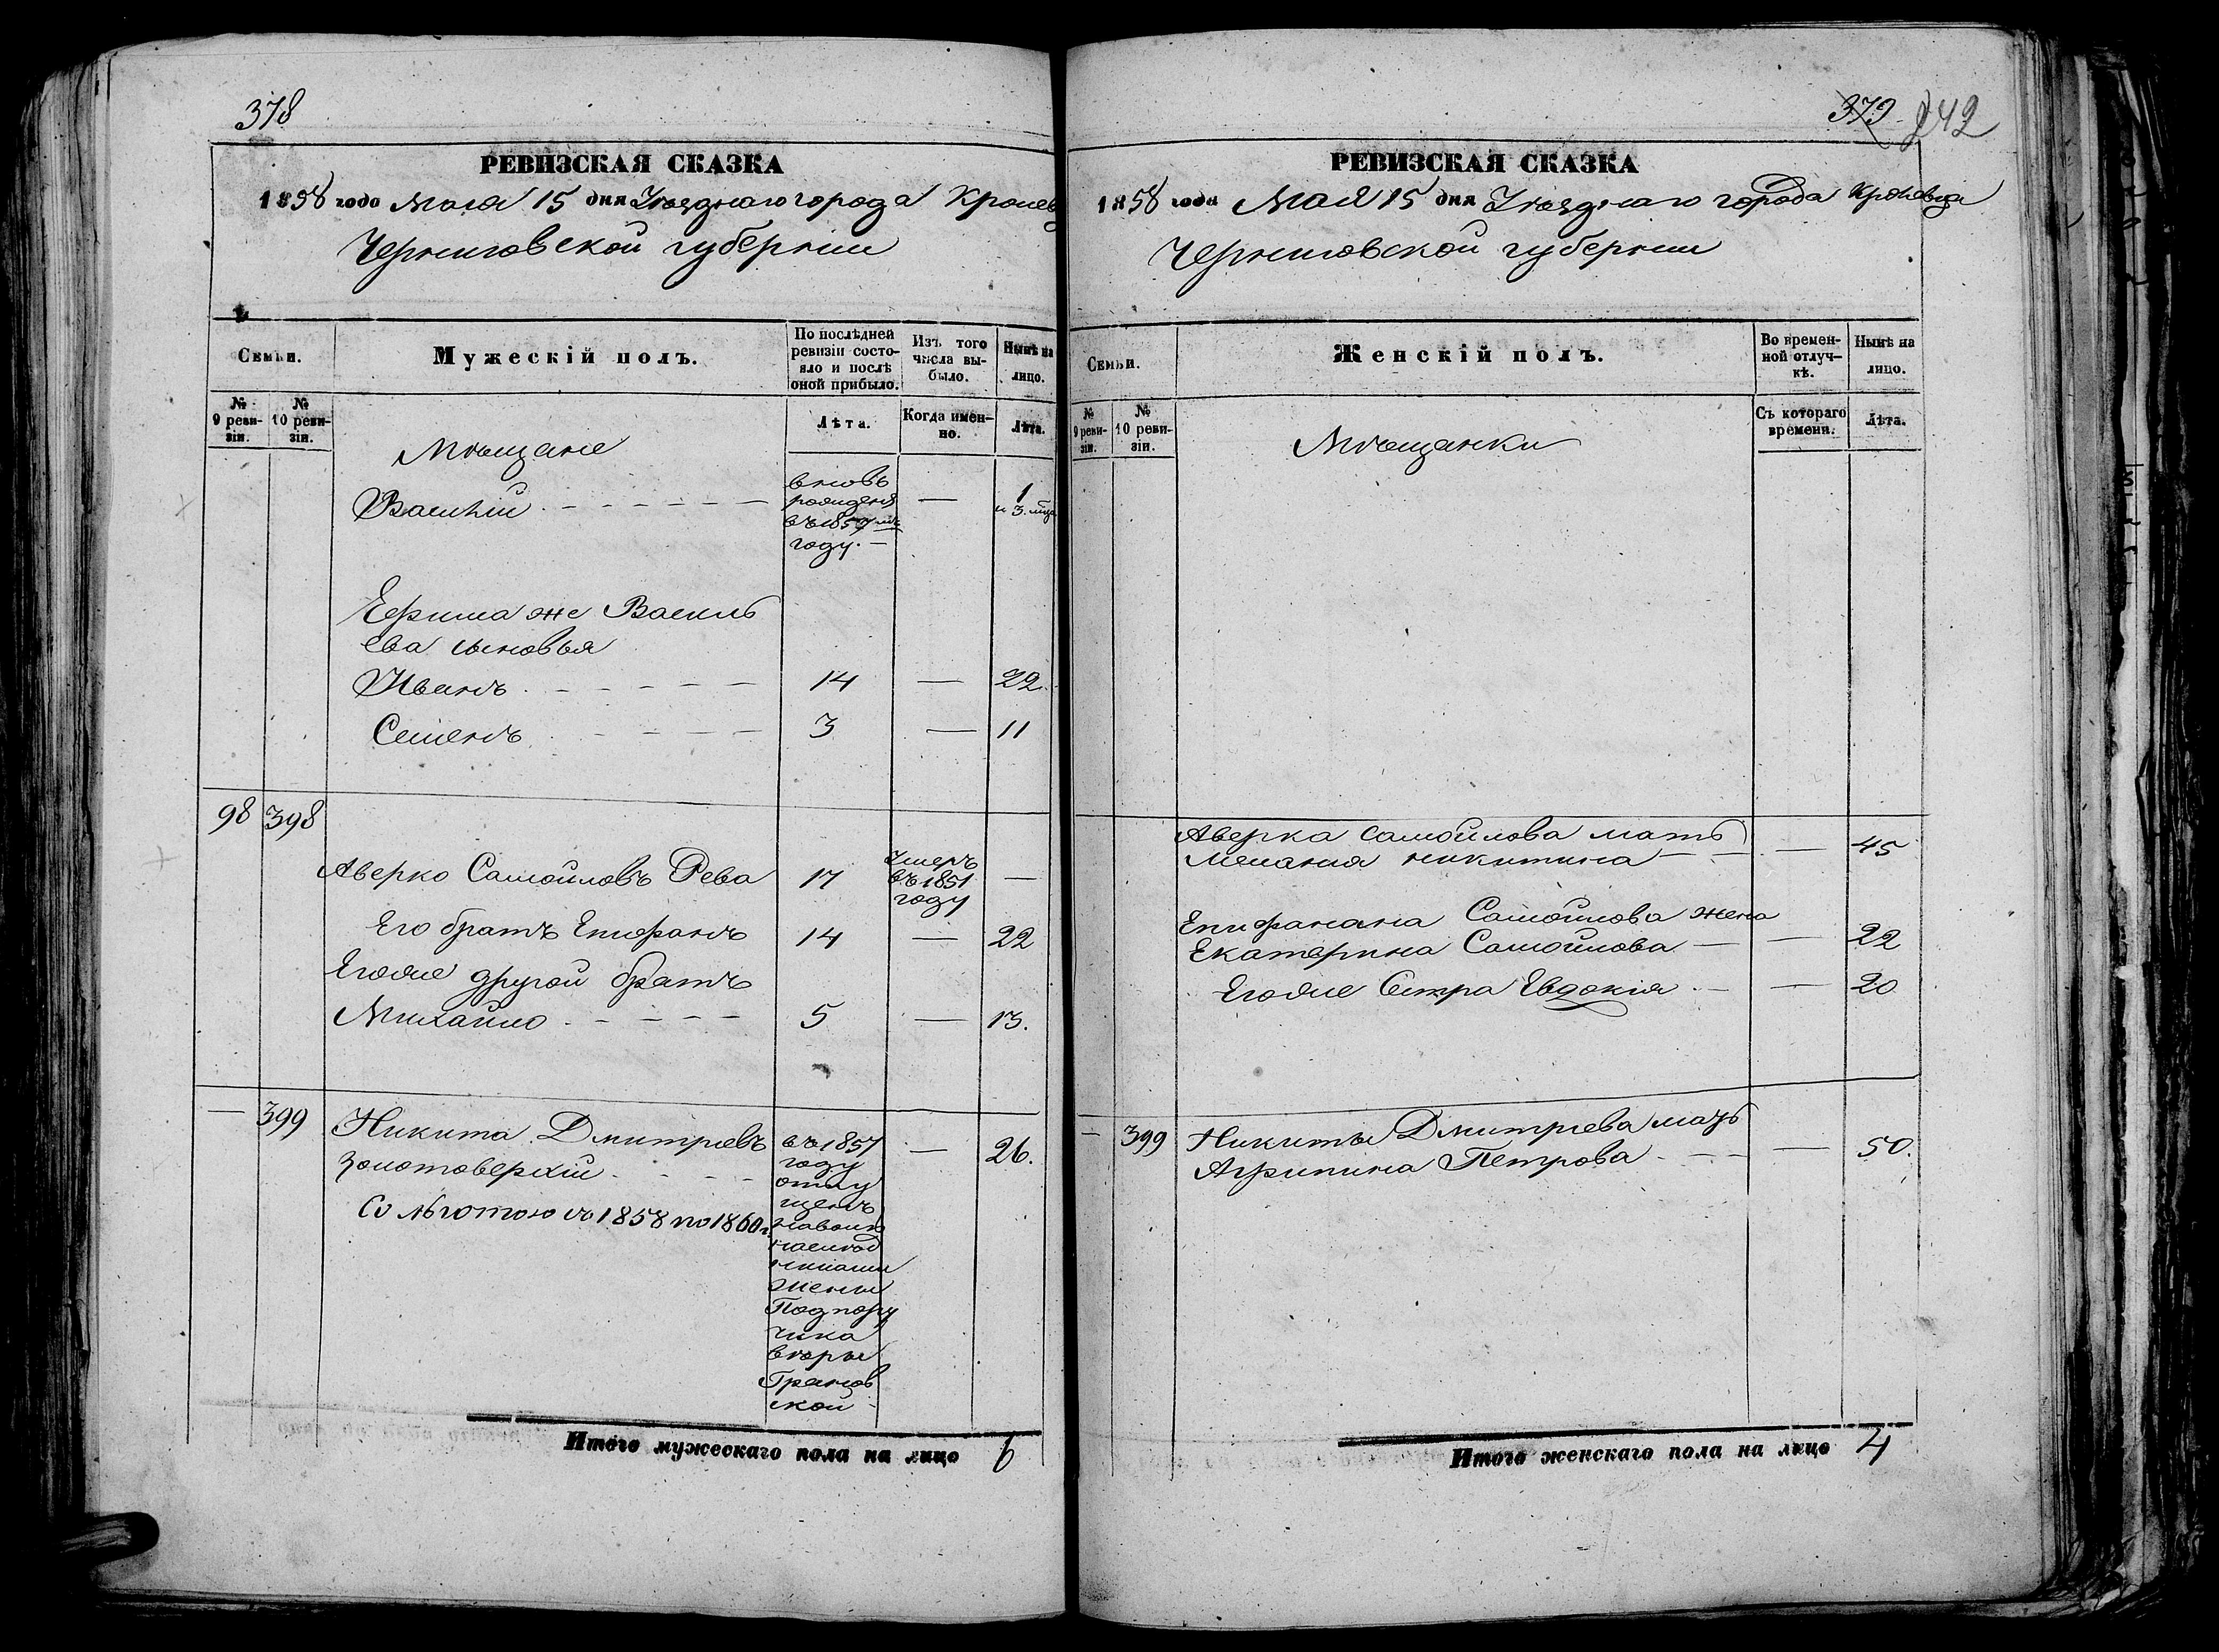 378
РЕВИЗСКАЯ СКАЗКА
1858 года Мая 15 дня Уѣзднаго города Кролев
Черниговской губерніи
Семьи.
Мужескій полъ.
По послѣдней ревизіи состо-
яло и послѣ
оной прибыло.
Изъ того
числа вы-
было.
Нынѣ на
лицо.
№
9 реви-
зіи.
№
10 реви-
зіи.
Лѣта.
Когда имен-
но.
Лѣта.
Мѣщане
Василій - - - - - - вновь рожденъ въ 1857 мъ году. — — 1 и 3. мца
Ефима же Василь
ева сыновья
Иванъ - - - - - 14 — 22.
Семенъ - - - - - 3 — 11
98 398
Аверко Самойловъ Рева 17 Умеръ въ 1851 году —
Его братъ Епифанъ 14 — 22
Егоже другой братъ
Михайло - - - - - 5 — 13.
— 399 Никита Дмитріевъ
Золотоверхій - - - — 26.
Съ льготою съ 1858 по 1860 г.
въ 1857
году
отпу
щенъ
на волю
жены
Подпору
чика
Вѣры
Гранов
ской -
Итого мужескаго пола на лицо 6
379 242
РЕВИЗСКАЯ СКАЗКА
1858 года Мая 15 дня Уѣзднаго города Кролевца
Черниговской губерніи
Семьи.
Женскій полъ.
Во времен-
ной отлуч-
кѣ.
Нынѣ на
лицо.
№
9 реви-
зіи.
№
10 реви-
зіи.
Съ котораго
времени.
Лѣта.
Мѣщанки
Аверка Самойлова мать
Меланія Никитина — - — 45
Епифана Самойлова жена
Екатерина Самойлова — — 22
Егоже Сестра Евдокія - — 20
— 399 Никиты Дмитріева мать
Агрипина Петрова - — - — 50.
Итого женскаго пола на лицо 4